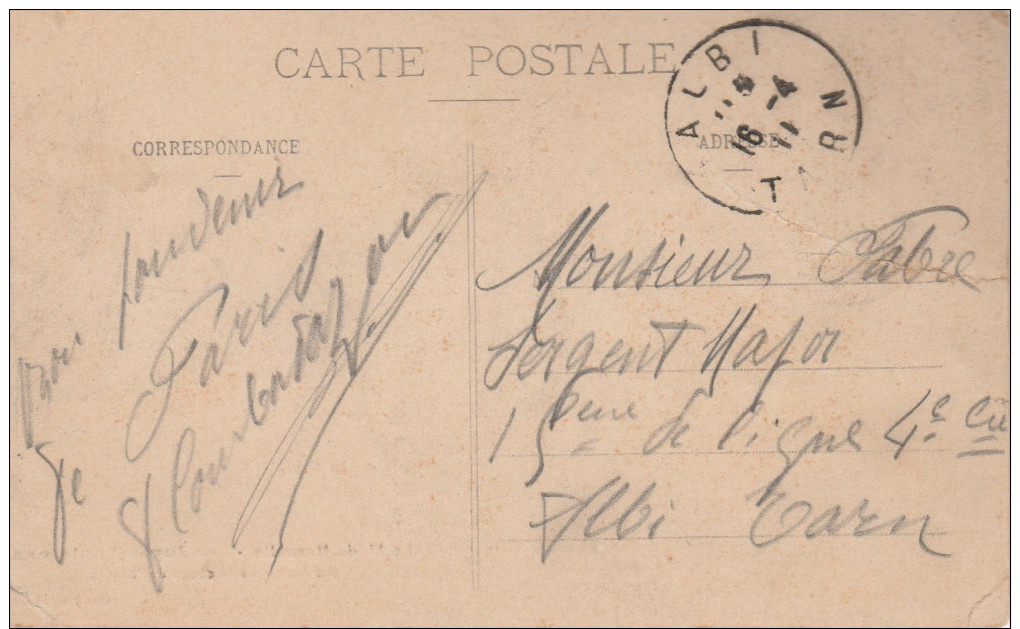 CARTE POSTALE
CORRESPONDANCE
ADRESSE
ALBI
16 -4
11
TARN
Bon souvenir
de Paris
Monsieur Fabre
Sergent Major
15eme de ligne 4e Cie
Albi Tarn